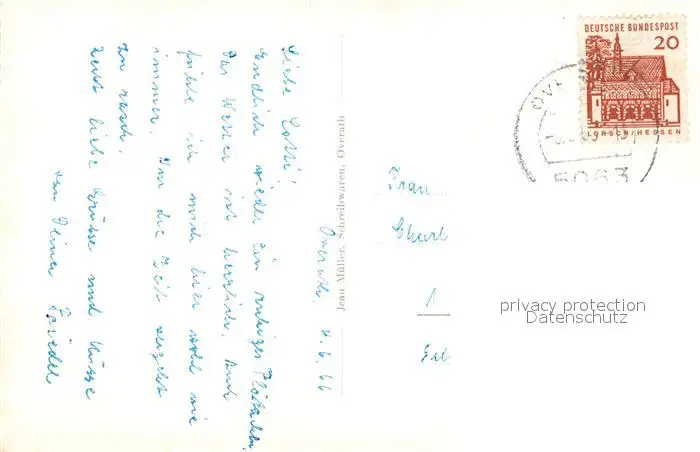 Overath, 4.6.66
Liebe Lotti!
Endlich wieder ein ruhiges Plätzchen.
Das Wetter ist herrlich. Auch
fühle ich mich hier wohl wie
immer. Nur die Zeit vergeht
zu rasch.
Recht liebe Grüsse und Küsse
von Deiner Friedel
Jean Müller, Schreibwaren, Overath
DEUTSCHE BUNDESPOST
20
LORSCH/HESSEN
5063
Frau
Charl
1
privacy protection
Datenschutz